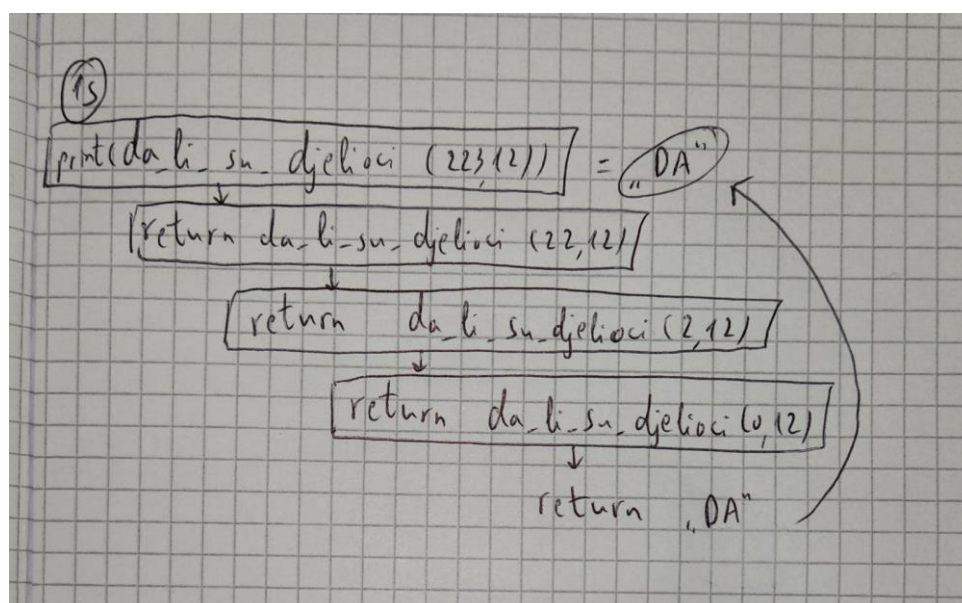 15
print(da_li_su_djelioci (223,12)) = „DA"
return da_li_su_djelioci (22,12)
return da_li_su_djelioci (2,12)
return da_li_su_djelioci (0,12)
return „DA"